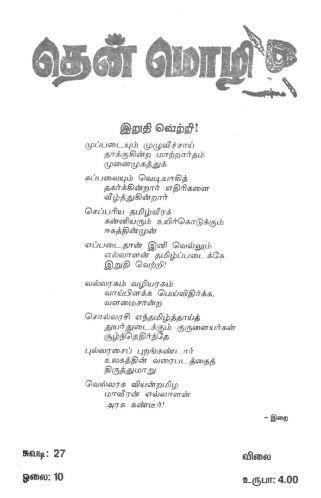 தென் மொழி
இறுதி வெற்றி!
முப்படையும் முழுவீச்சாய்
தாக்குகின்ற மாற்றார்தம்
முனைமுகத்துக்
கப்பலையும் வெடியாகித்
தகர்க்கின்றார் எதிரிகளை
வீழ்த்துகின்றார்
செப்பரிய தமிழ்வீரக்
கன்னியரும் உயிர்கொடுக்கும்
ஈகத்தின்முன்
எப்படைதான் இனி வெல்லும்
எல்லாளன் தமிழ்ப்படைக்கே
இறுதி வெற்றி!
வல்லரசும் வழியரசும்
வாய்பிளக்க மெய்விதிர்க்க,
வளமைசான்ற
சொல்லரசி எந்தமிழ்த்தாய்த்
துயர்துடைக்கும் குருளையர்கள்
சூழ்ந்தெதிர்ந்தே
புல்லரசைப் புறங்கண்டார்
உலகத்தின் வரைபடத்தைத்
திருத்துமாறு
வெல்லரசு வியன்றமிழ
மாவீரன் எல்லாளன்
அரசு கண்டீர்!
– இறை
சுவடி: 27
விலை
ஓலை: 10
உருபா: 4.00